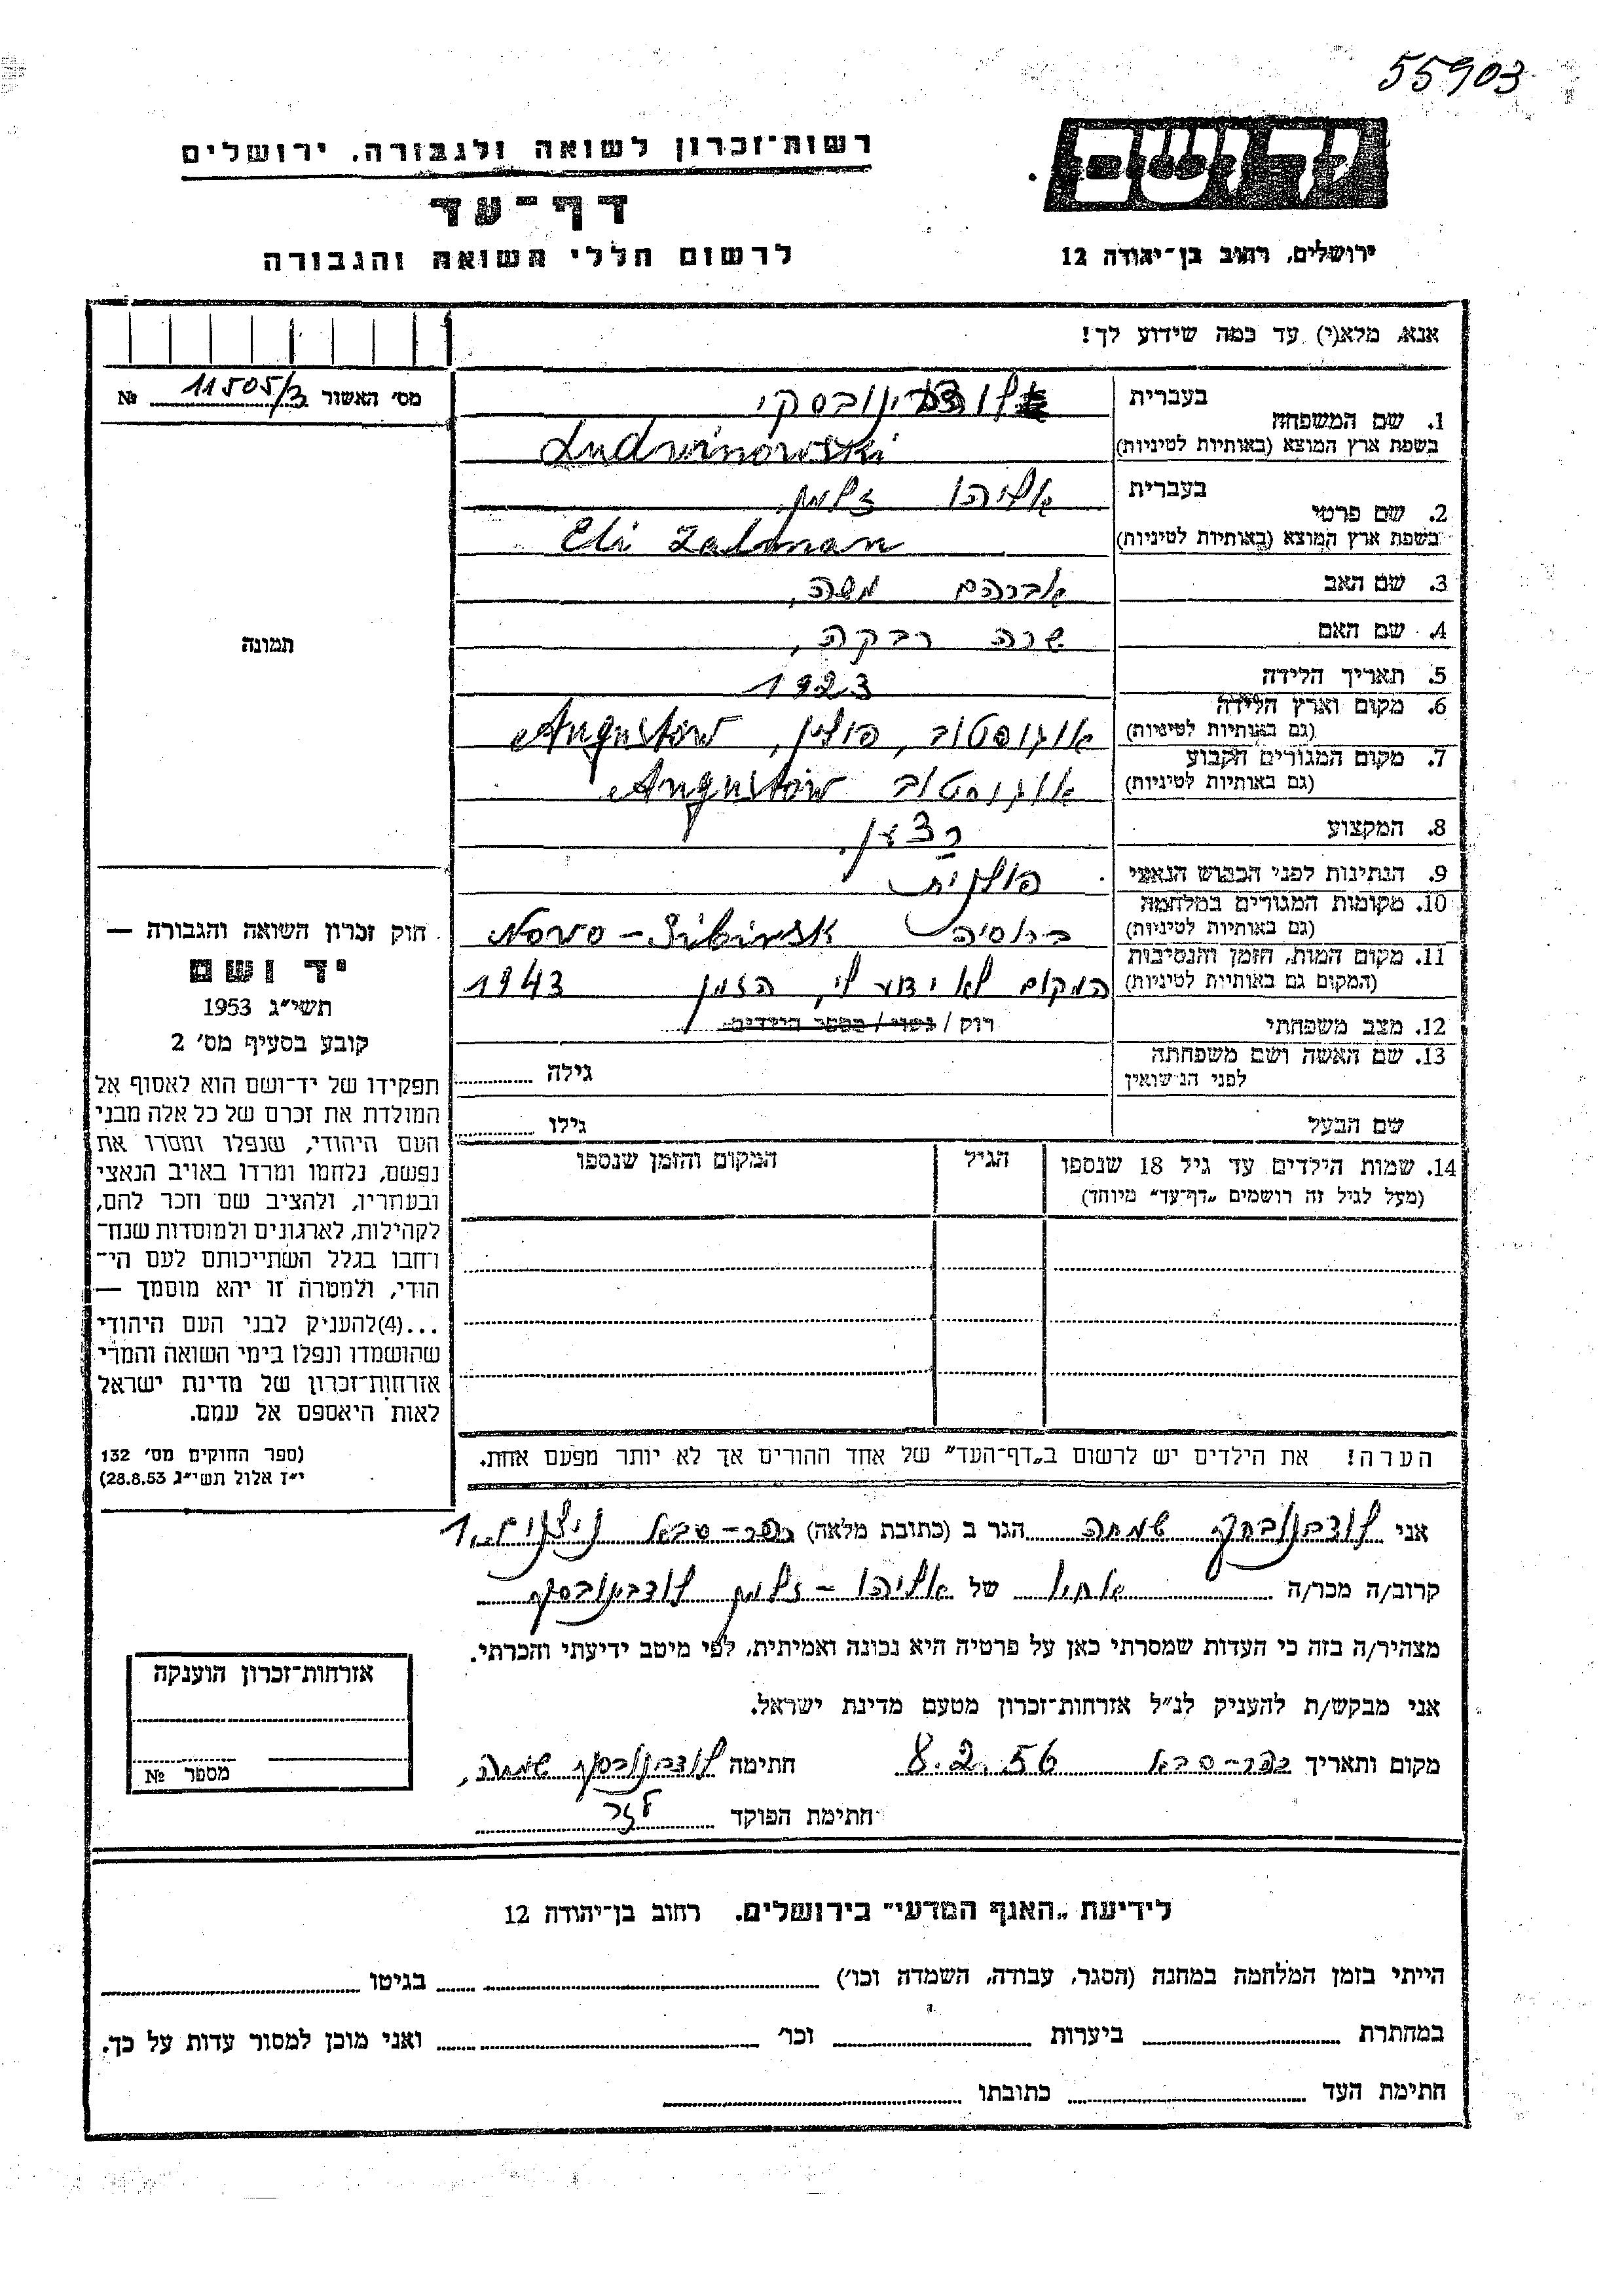 55903
יד ושם
רשות־זכרון לשואה ולגבורה, ירושלים
דף־עד
לרשום חללי השואה והגבורה
ירושלים, רחוב בן־יהודה 12
אנא, מלא(י) עד כמה שידוע לך!
מס' האשור 11505/3 №
תמונה
1. שם המשפחה
בעברית לודבינובסקי
בשפת ארץ המוצא (באותיות לטיניות) Ludwinowski
2. שם פרטי
בעברית אליהו זלמן
בשפת ארץ המוצא (באותיות לטיניות) Eli Zalman
3. שם האב אברהם משה,
4. שם האם שרה רבקה,
5. תאריך הלידה 1923
6. מקום וארץ הלידה
(גם באותיות לטיניות) אוגוסטוב, פולין, Augustów
7. מקום המגורים הקבוע
(גם באותיות לטיניות) אוגוסטוב Augustów
8. המקצוע רצען.
9. הנתינות לפני הכבוש הנאצי פולנית
10. מקומות המגורים במלחמה
(גם באותיות לטיניות) ברוסיה Novo-Sibirsk
11. מקום המות, הזמן והנסיבות
(המקום גם באותיות לטיניות) המקום לא ידוע לי, הזמן 1943
12. מצב משפחתי רוק / נשוי / מספר הילדים
13. שם האשה ושם משפחתה
לפני הנישואין גילה
שם הבעל גילו
14. שמות הילדים עד גיל 18 שנספו הגיל המקום והזמן שנספו
(מעל לגיל זה רושמים „דף־עד" מיוחד)
הערה! את הילדים יש לרשום ב„דף־העד" של אחד ההורים אך לא יותר מפעם אחת.
חוק זכרון השואה והגבורה —
יד ושם
תשי"ג 1953
קובע בסעיף מס' 2
תפקידו של יד־ושם הוא לאסוף אל
המולדת את זכרם של כל אלה מבני
העם היהודי, שנפלו ומסרו את
נפשם, נלחמו ומרדו באויב הנאצי
ובעוזריו, ולהציב שם וזכר להם,
לקהילות, לארגונים ולמוסדות שנח־
רחבו בגלל השתייכותם לעם הי־
הודי, ולמטרה זו יהא מוסמך —
...(4)להעניק לבני העם היהודי
שהושמדו ונפלו בימי השואה והמרי
אזרחות־זכרון של מדינת ישראל
לאות היאספם אל עמם.
(ספר החוקים מס' 132
י"ז אלול תשי"ג 28.8.53)
אני לודבינובסקי שמחה הגר ב (כתובת מלאה) כפר-סבא 1
קרוב/ה מכר/ה אחיו של אליהו-זלמן לודבינובסקי
מצהיר/ה בזה כי העדות שמסרתי כאן על פרטיה היא נכונה ואמיתית, לפי מיטב ידיעתי והכרתי.
אני מבקש/ת להעניק לנ"ל אזרחות־זכרון מטעם מדינת ישראל.
מקום ותאריך כפר-סבא 8.2.56 חתימה לודבינובסקי שמחה,
חתימת הפוקד
אזרחות־זכרון הוענקה
מספר №
לידיעת „האגף המדעי" בירושלים, רחוב בן־יהודה 12
הייתי בזמן המלחמה במחנה (הסגר, עבודה, השמדה וכו') בגיטו
במחתרת ביערות וכו' ואני מוכן למסור עדות על כך.
חתימת העד כתובתו